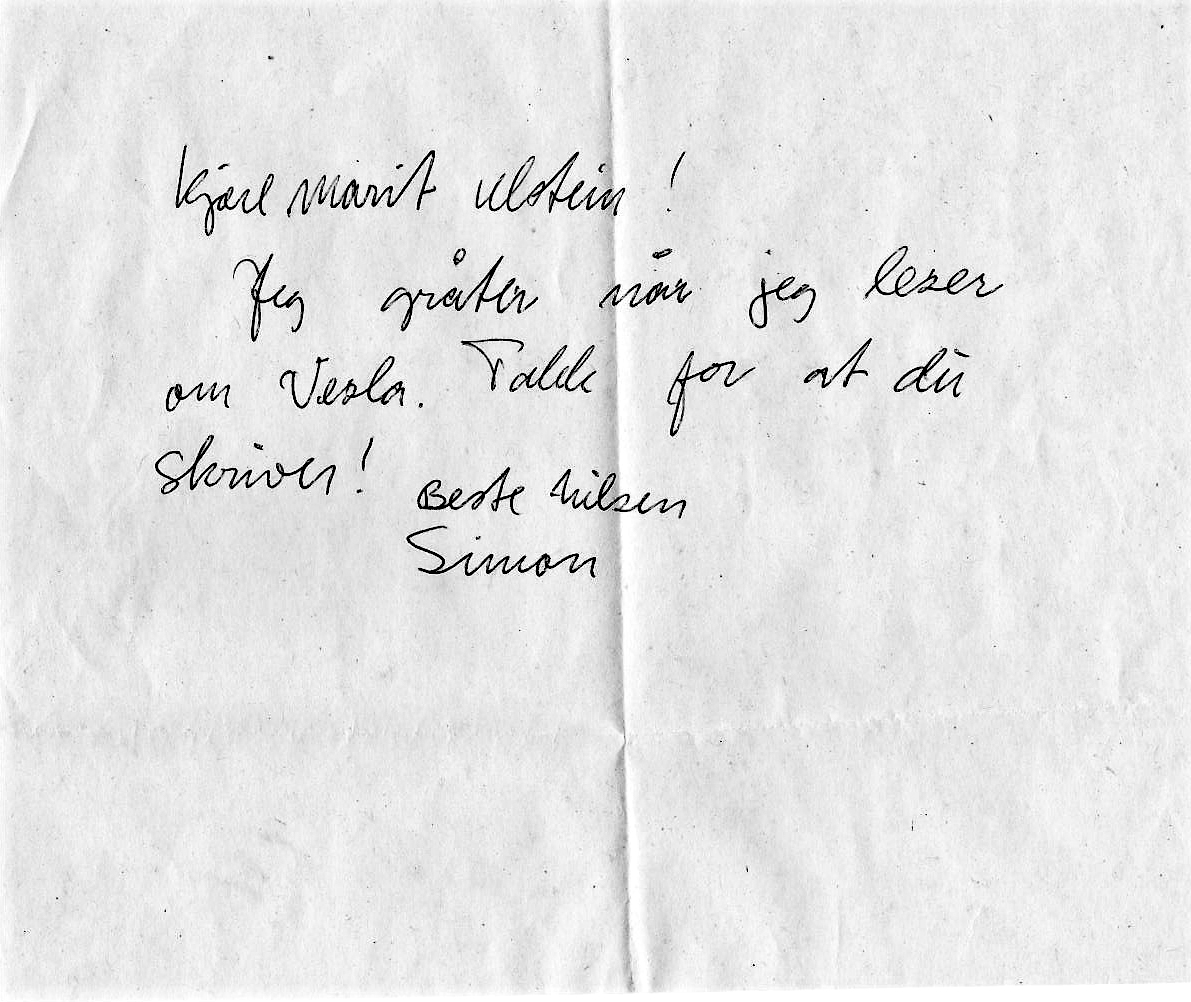 Kjære Marit Ulstein!
Jeg gråter når jeg leser
om Vesla. Takk for at du
skriver!
Beste hilsen
Simon